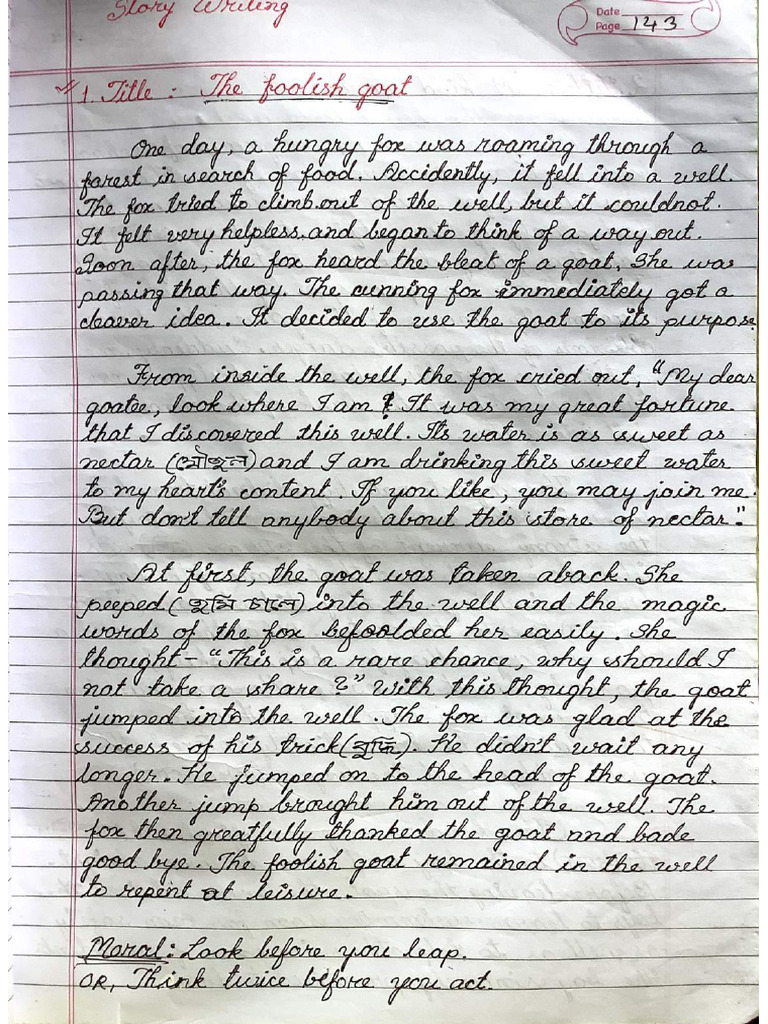 Story Writing
Date
Page 143
1. Title : The foolish goat
One day, a hungry fox was roaming through a
forest in search of food. Accidently, it fell into a well.
The fox tried to climb out of the well, but it couldnot.
It felt very helpless and began to think of a way out.
Soon after, the fox heard the bleat of a goat. She was
passing that way. The cunning fox immediately got a
cleaver idea. It decided to use the goat to its purpose.
From inside the well, the fox cried out, "My dear
goatee, look where I am ! It was my great fortune
that I discovered this well. Its water is as sweet as
nectar ( ) and I am drinking this sweet water
to my heart's content. If you like, you may join me.
But don't tell anybody about this store of nectar."
At first, the goat was taken aback. She
peeped ( ) into the well and the magic
words of the fox befoolded her easily. She
thought - "This is a rare chance, why should I
not take a share ?" With this thought, the goat
jumped into the well. The fox was glad at the
success of his trick ( ). He didn't wait any
longer. He jumped on to the head of the goat.
Another jump brought him out of the well. The
fox then greatfully thanked the goat and bade
good bye. The foolish goat remained in the well
to repent at leisure.
Moral: Look before you leap.
OR, Think twice before you act.